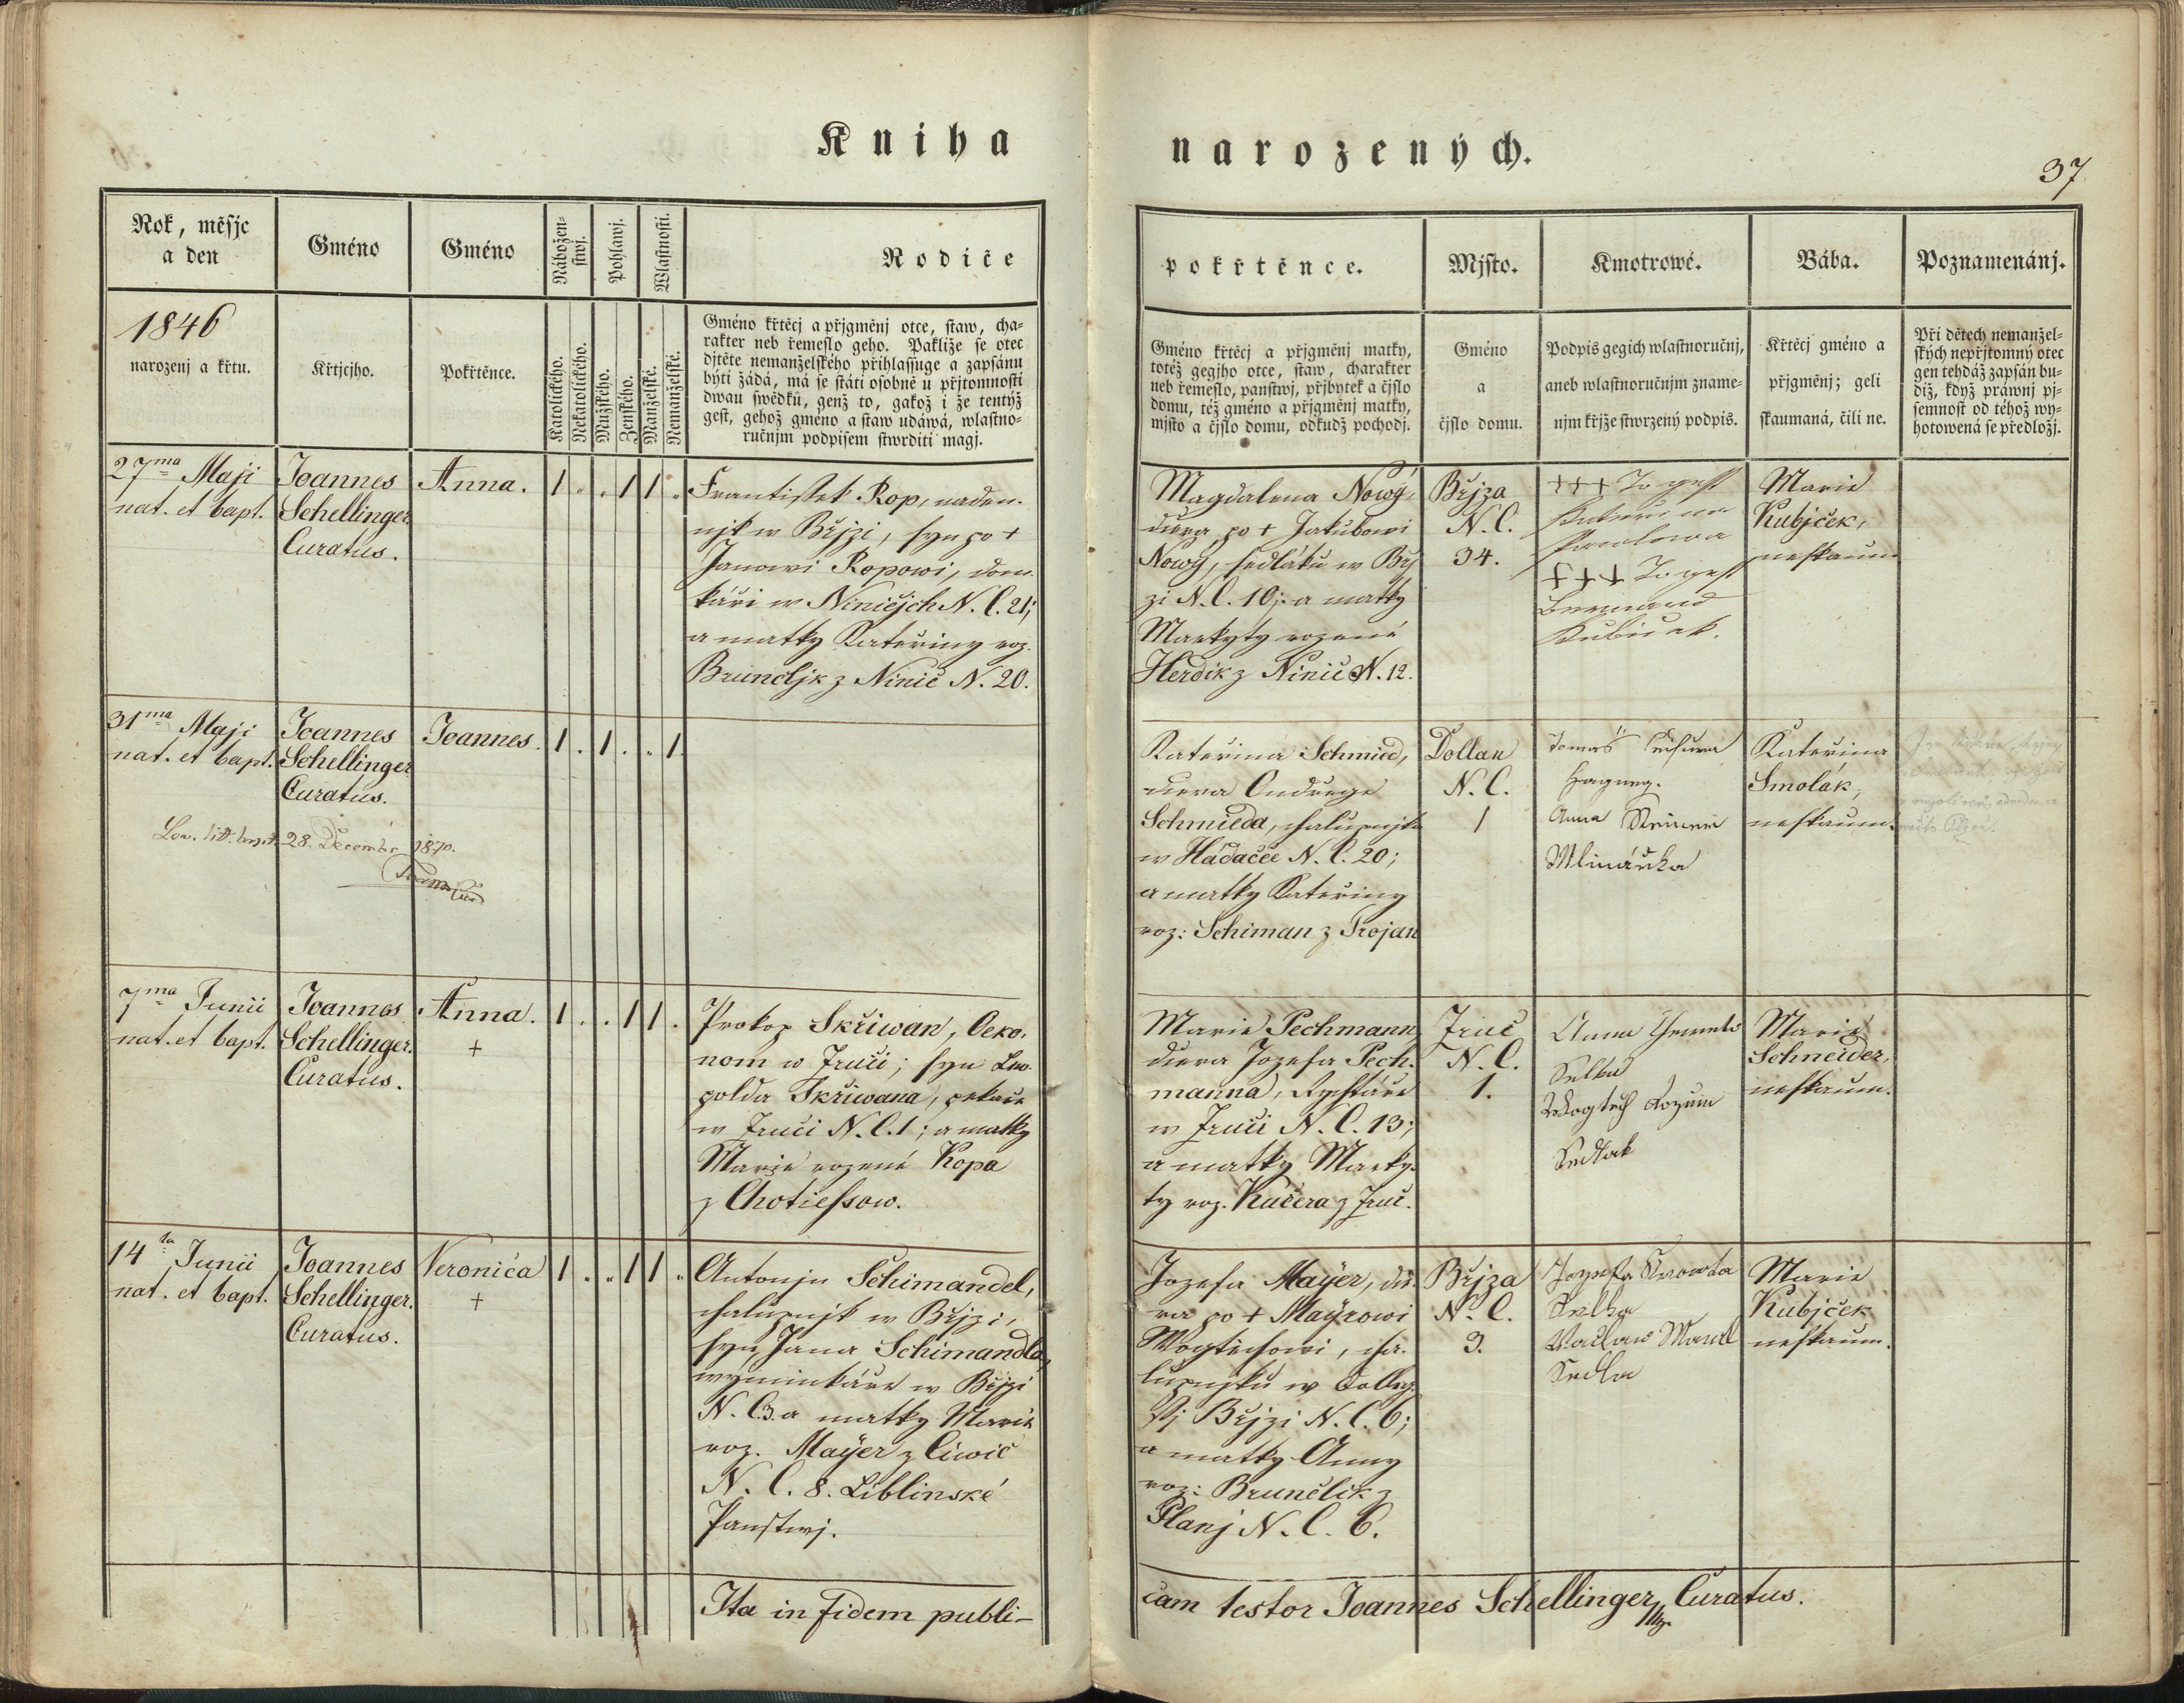 Kniha narozených.
37
Rok, měsjc
a den
Gméno
Gméno
Nábožen-
stwj.
Pohlawj.
Wlastnosti.
Rodiče
pokřtěnce.
Mjsto.
Kmotrowé.
Bába.
Poznamenánj.
1846
narozenj a křtu.
Křtjcjho.
Pokřtěnce.
Katolického.
Nekatolického.
Mužského.
Ženského.
Manželské.
Nemanželské.
Gméno křtěcj a přjgměnj otce, staw, cha-
rakter neb řemeslo geho. Pakliže se otec
djtěte nemanželského přihlassuge a zapsánu
býti žádá, má se státi osobně u přjtomnosti
dwau swědků, genž to, gakož i že tentýž
gest, gehož gméno a staw udáwá, wlastno-
ručnjm podpisem stwrditi magj.
Gméno křtěcj a přjgměnj matky,
totéž gegjho otce, staw, charakter
neb řemeslo, panstwj, přjbytek a čjslo
domu, též gméno a přjgměnj matky,
mjsto a čjslo domu, odkudž pochodj.
Gméno
a
čjslo domu.
Podpis gegich wlastnoručnj,
aneb wlastnoručnjm zname-
njm křjže stwrzený podpis.
Křtěcj gméno a
přjgměnj; geli
skaumaná, čili ne.
Při dětech nemanžel-
ských nepřjtomný otec
gen tehdáž zapsán bu-
diž, když práwnj pj-
semnost od téhož wy-
hotowená se předložj.
27ma Maji
nat. et bapt.
Joannes
Schellinger
Curatus.
Anna.
1 . . 1 1 .
Frantissek Rop, naden-
njk w Břjzi, syn po +
Janowi Ropowi, dom-
káři w Niničjch N. C. 21;
a matky Kateřiny roz.
Bruncljk z Ninič N. 20.
Magdalena Nowý,
dcera po + Jakubowi
Nowý, sedláku w Břj
zi N. C. 10; a matky
Markyty rozené
Herdik z Ninič N. 12.
Břjza
N. C.
34.
+++ To gest
Pawlowa
+++ To gest
Bernard
Kubicek.
Marie
Kubjček,
neskaum
31ma Maji
nat. et bapt.
Joannes
Schellinger
Curatus.
Joannes.
1 . 1 . . 1
28. Decembr 1870.
Kateřina Schmied,
dcera Ondřege
Schmieda, chalupnjka
w Hádačce N. C. 20;
a matky Kateřiny
roz: Schiman z Trojan
Dollan
N. C.
1
Tomas
Hagney.
Anna
Mlinářka
Kateřina
Smolák,
neskaum.
7ma Junii
nat. et bapt.
Joannes
Schellinger.
Curatus.
Anna.
+
1 . . 1 1 .
Prokop Skřiwan, Oeko-
nom w Zruči; syn Leo-
polda Skřiwana, pekaře
w Zruči N. C. 1; a matky
Marie rozené Kopa
z Chotiessow.
Marie Pechmann,
dcera Jozefa Pech-
manna, Rychtáře
w Zruči N. C. 13;
a matky Marky-
ty roz. Kučera z Zruč.
Zruč
N. C.
1.
Anna
Selka
Wogtěch Rozum
Sedlak
Marie
Schneider,
neskaum.
14ta Junii
nat. et bapt.
Joannes
Schellinger.
Curatus.
Veronica
+
1 . . 1 1 .
Antonjn Schimandel,
chalupnjk w Břjzi,
syn Jana Schimandla,
wyminkáře w Břjzi
N. C. 3. a matky Marie
roz. Mayer z Liwic
N. C. 8. Liblinské
Panstwj.
Jozefa Mayer, dce-
ra po + Mayrowi
Wogtěchowi, cha-
lupnjku w
Břjzi N. C. 6;
a matky Anny
roz: Brunclik z
Planj N. C. 6.
Břjza
N. C.
3.
Jozefa
Selka
Waclaw
Marie
Kubjček
neskaum.
Ita in fidem publi-
cam testor Joannes Schellinger Curatus.